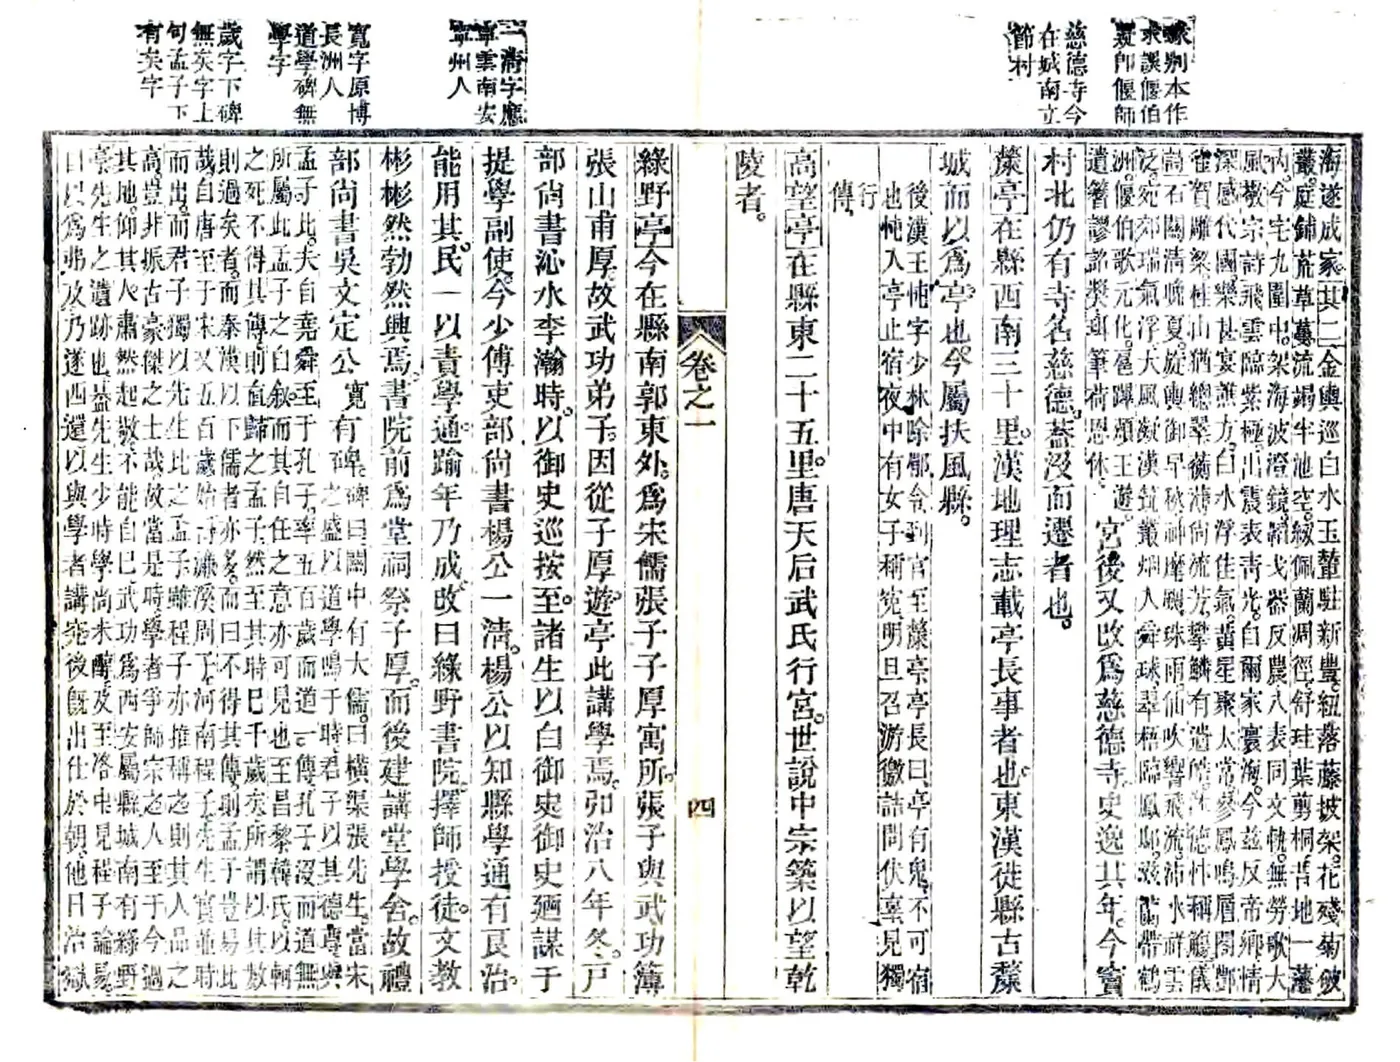 別本作
求誤偃伯
疑師偃師
慈德寺今
在城南立
節村
一清字應
寧雲南安
寧州人
寬字原博
長洲人
道學碑無
學字
歲字下碑
無矣字上
句孟子下
有矣字
海遂成家其二金輿巡白水玉輦駐新豐紐落藤披架花殘菊破
叢庭鋪荒草蔓流竭半池空紉佩蘭凋徑舒珪葉剪桐昔地一蕃
內今宅九圍中架海波澄鏡韜戈器反農八表同文軌無勞歌大
風敬宗詩飛雲臨紫極出震表青光自爾家寰海今茲反帝鄉情
深感代國樂甚宴譙方白水浮佳氣黃星聚太常參鳳鳴層閣酆
雀賀雕梁桂山猶總翠蘅薄尚流芳攀鱗有逸皓沐德抃稱觴儀
詩石關清晚夏旋輿御早秋神麾颺珠雨仙吹響飛流沛水祥雲
泛宛郊瑞氣浮大風凝漢筑叢煙入舜球翠梧臨鳳邸滋蘭帶鶴
洲偃伯歌元化扈蹕頌王遊
遺簪謬昭獎珥筆荷恩休
宮後又改為慈德寺史逸其年今寶
村北仍有寺名慈德蓋沒而遷者也
漦亭在縣西南三十里漢地理志載亭長事者也東漢徙縣古漦
城而以為亭也今屬扶風縣
後漢王忳字少林除郿令到官至漦亭亭長曰亭有鬼不可宿
也忳入亭止宿夜中有女子稱冤明旦召游徼詰問伏辜見獨
行
傳
高望亭在縣東二十五里唐天后武氏行宮世說中宗築以望乾
陵者
卷之一
四
綠野亭今在縣南郭東外為宋儒張子子厚寓所張子與武功簿
張山甫厚故武功弟子因從子厚遊亭此講學焉弘治八年冬戸
部尙書沁水李瀚時以御史巡按至諸生以白御史御史廼謀于
提學副使今少傅吏部尙書楊公一清楊公以知縣學通有良治
能用其民一以責學通踰年乃成改曰綠野書院擇師授徒文教
彬彬然勃然興焉書院前為堂祠祭子厚而後建講堂學舍故禮
部尙書吳文定公寬有碑
碑曰關中有大儒曰橫渠張先生當宋
之盛以道學鳴于時君子以其德尊與
孟子比夫自堯舜至于孔子率五百歲而道一傳孔子沒而道無
所屬此孟子之自敘而其自任之意亦可見也至昌黎韓氏以軻
之死不得其傳則直歸之孟子然至其時巳千歲矣所謂以其數
則過矣者而秦漢以下儒者亦多而曰不得其傳則孟子豈易比
哉自唐至于宋又五百歲始有濂溪周子河南程子先生實並時
而出而君子獨以先生比之孟子雖程子亦推稱之則其人品之
高豈非振古豪傑之士哉故當是時學者爭師宗之人至于今過
其地仰其人肅然起敬不能自巳武功為西安屬縣城南有綠野
亭先生之遺跡也蓋先生少時學尚未醇及至洛中見程子論易
自以為弗及乃遂西還以與學者講究後旣出仕於朝他日治獄